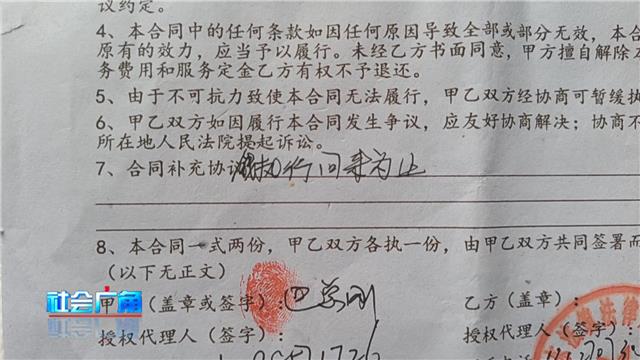 议约定。
4、本合同中的任何条款如因任何原因导致全部或部分无效，本合
原有的效力，应当予以履行。未经乙方书面同意，甲方擅自解除本
务费用和服务定金乙方有权不予退还。
5、由于不可抗力致使本合同无法履行，甲乙双方经协商可暂缓执
6、甲乙双方如因履行本合同发生争议，应友好协商解决；协商不
所在地人民法院提起诉讼。
7、合同补充协议 执行回来为止
8、本合同一式两份，甲乙双方各执一份，由甲乙双方共同签署而
（以下无正文）
社会广角
甲 （盖章或签字）： 乙方（盖章）：
授权代理人（签字）： 授权代理人（签字）：